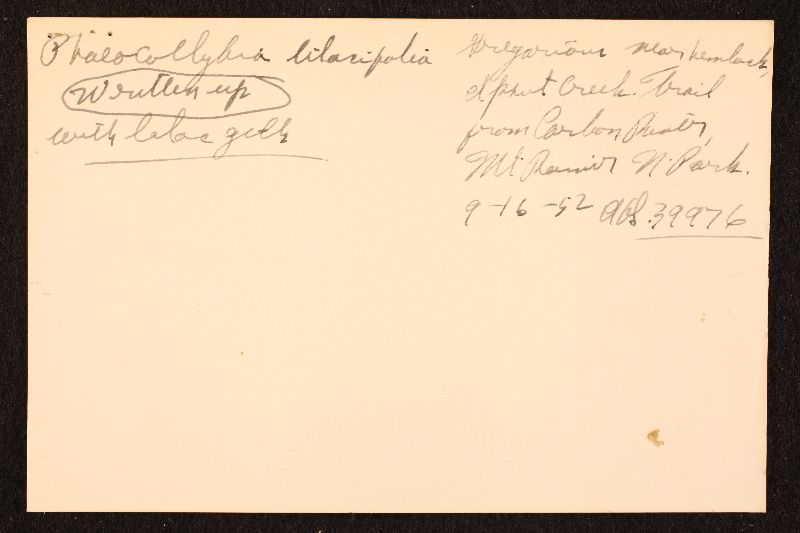 Phaeocollybia lilacifolia
Written up
with lilac gills
Gregarious near hemlock,
Ipsut Creek Trail
from Carbon River,
Mt Rainier N. Park.
9-16-52 AHS 39976